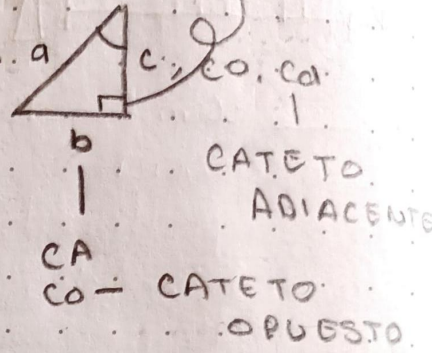 a
c, co, Cd
b
CATETO
ADIACENTE
CA
CO - CATETO
OPUESTO